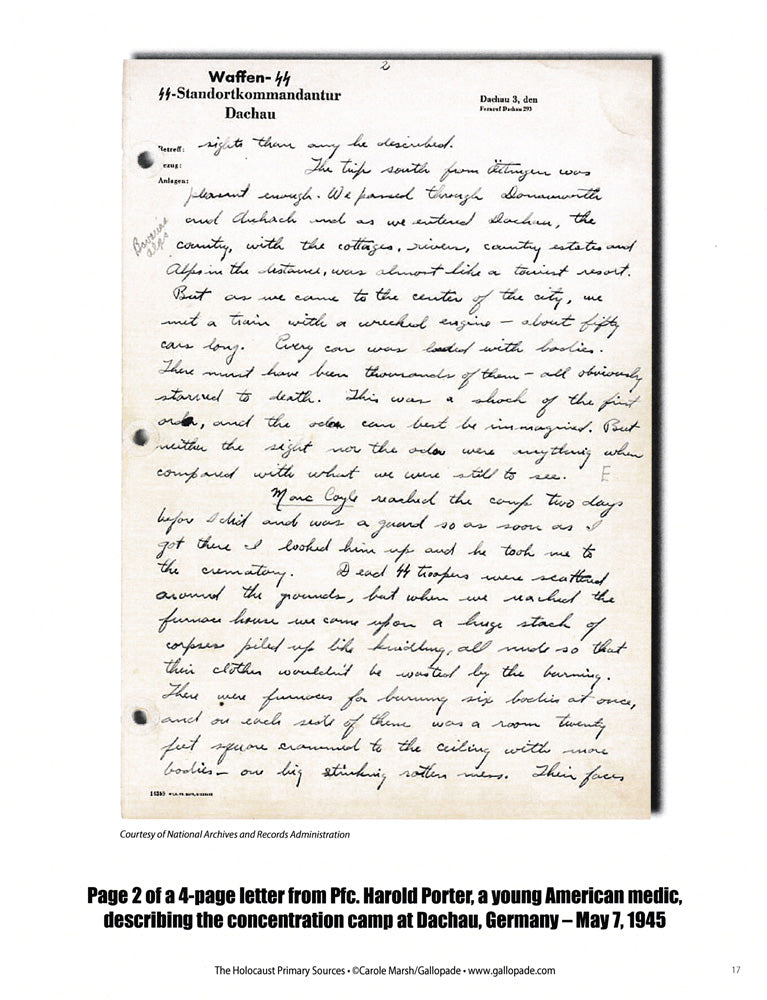 2
Waffen-SS
SS-Standortkommandantur
Dachau
Dachau 3, den
Fernruf Dachau 293
Betreff:
Bezug:
Anlagen:
Bavarian
Alps
sights than any he described.
The trip south from Öttingen was
pleasant enough. We passed through Donauworth
and Aichach and as we entered Dachau, the
country, with the cottages, rivers, country estates and
Alps in the distance, was almost like a tourist resort.
But as we came to the center of the city, we
met a train with a wrecked engine – about fifty
cars long. Every car was loaded with bodies.
There must have been thousands of them – all obviously
starved to death. This was a shock of the first
order, and the odor can best be immagined. But
neither the sight nor the odor were anything when
compared with what we were still to see. E
Marc Coyle reached the camp two days
before I did and was a guard so as soon as I
got there I looked him up and he took me to
the crematory. Dead SS troopers were scattered
around the grounds, but when we reached the
furnace house we came upon a huge stack of
corpses piled up like kindling, all nude so that
their clothes wouldn't be wasted by the burning.
There were furnaces for burning six bodies at once,
and on each side of them was a room twenty
feet square crammed to the ceiling with more
bodies – one big stinking rotten mess. Their faces
Courtesy of National Archives and Records Administration
Page 2 of a 4-page letter from Pfc. Harold Porter, a young American medic,
describing the concentration camp at Dachau, Germany – May 7, 1945
The Holocaust Primary Sources • ©Carole Marsh/Gallopade • www.gallopade.com
17